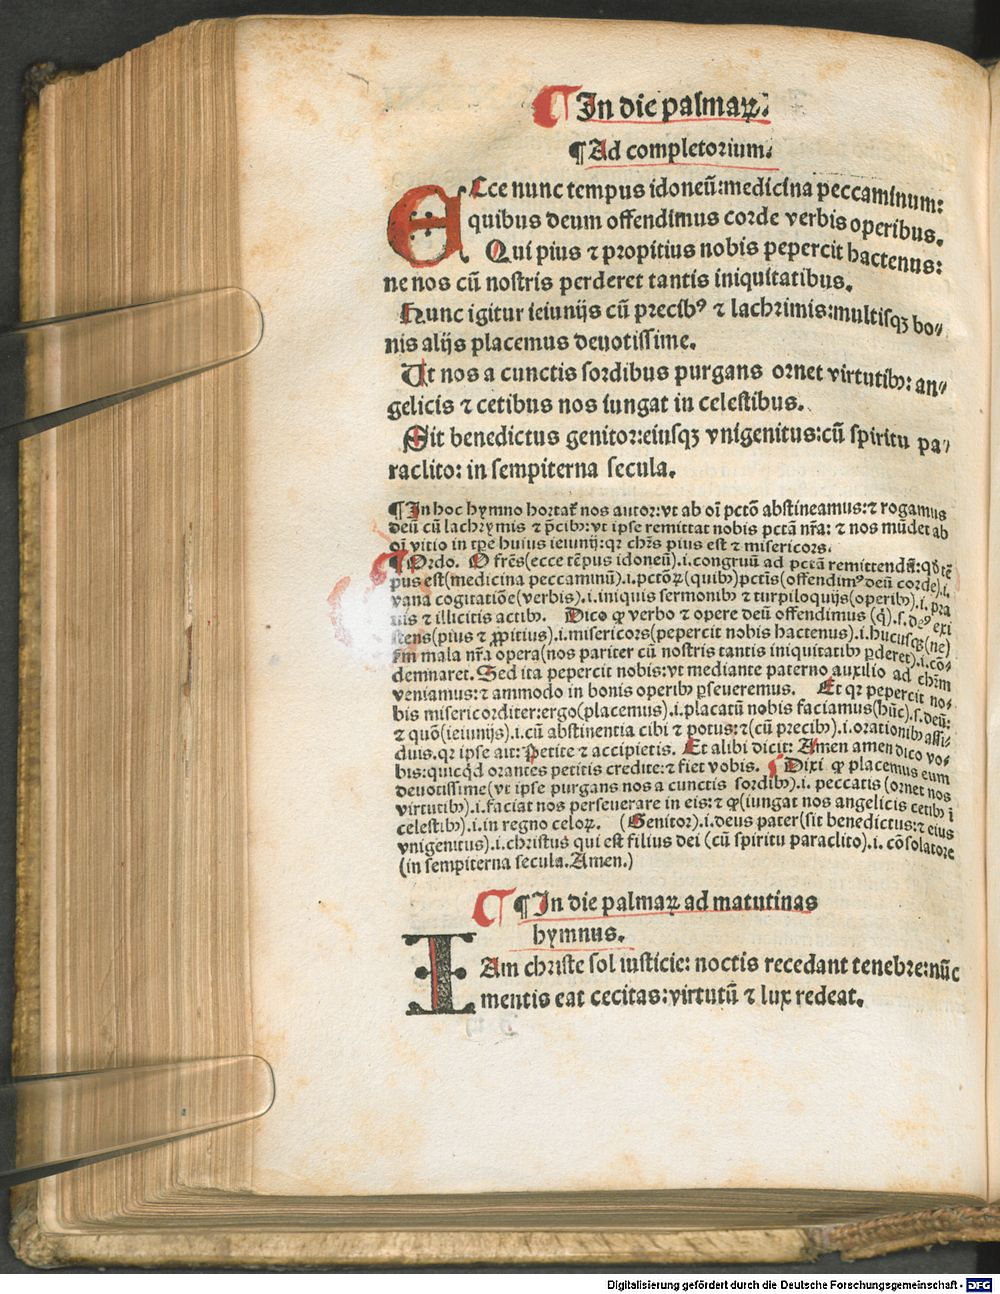 ¶ In die palmaꝝ.
¶ Ad completorium.
Ecce nunc tempus idoneū:medicina peccaminum:
quibus deum offendimus corde verbis operibus.
Qui pius ⁊ propitius nobis pepercit hactenus:
ne nos cū nostris perderet tantis iniquitatibus.
Hunc igitur ieiunijs cū precibꝰ ⁊ lachrimis:multisqꝫ bo/
nis alijs placemus deuotissime.
Ut nos a cunctis sordibus purgans ornet virtutibꝫ: an/
gelicis ⁊ cetibus nos iungat in celestibus.
Sit benedictus genitor:eiusqꝫ vnigenitus:cū spiritu pa/
raclito: in sempiterna secula.
¶ In hoc hymno hortat᷑ nos autor:vt ab oī pctō abstineamus:⁊ rogamus
deū cū lachrymis ⁊ p̄cibꝫ:vt ipse remittat nobis pctā nr̄a: ⁊ nos mūdet ab
oī vitio in tp̄e huius ieiunij:qꝛ chr̄s pius est ⁊ misericors.
¶ Ordo. O fr̄es(ecce tēpus idoneū).i.congruū ad pctā remittendā:qꝛ tē
pus est(medicina peccaminū).i.pctōꝝ(quibꝫ)pctīs(offendimꝰ deū corde).i.
vana cogitatiōe(verbis).i.iniquis sermonibꝫ ⁊ turpiloquijs(operibꝫ).i.pra
uis ⁊ illicitis actibꝫ. Dico ꝙ verbo ⁊ opere deū offendimus (q̇).s.deꝰ exi
stens(pius ⁊ ꝓpitius).i.misericors(pepercit nobis hactenus).i.hucusqꝫ(ne)
fm mala nr̄a opera(nos pariter cū nostris tantis iniquitatibꝫ ꝑderet).i.cō/
demnaret. Sed ita pepercit nobis:vt mediante paterno auxilio ad chr̄m
veniamus:⁊ ammodo in bonis operibꝫ ꝑseueremus. Et qꝛ pepercit no/
bis misericorditer:ergo(placemus).i.placatū nobis faciamus(hūc).s.deū:
⁊ quō(ieiunijs).i.cū abstinentia cibi ⁊ potus:⁊(cū precibꝫ).i.orationibꝫ assi/
duis.qꝛ ipse ait: Petite ⁊ accipietis. Et alibi dicit: Amen amen dico vo/
bis:quicq̇d orantes petitis credite:⁊ fiet vobis. Dixi ꝙ placemus eum
deuotissime(vt ipse purgans nos a cunctis sordibꝫ).i. peccatis (ornet nos
virtutibꝫ).i.faciat nos perseuerare in eis:⁊ ꝙ(iungat nos angelicis cetibꝫ ī
celestibꝫ).i.in regno celoꝝ. (Genitor).i.deus pater(sit benedictus:⁊ eius
vnigenitus).i.christus qui est filius dei (cū spiritu paraclito).i. cōsolatore
(in sempiterna secula.Amen.)
¶ In die palmaꝝ ad matutinas
hymnus.
IAm christe sol iusticie: noctis recedant tenebre:nūc
mentis eat cecitas:virtutū ⁊ lux redeat.
Digitalisierung gefördert durch die Deutsche Forschungsgemeinschaft - DFG